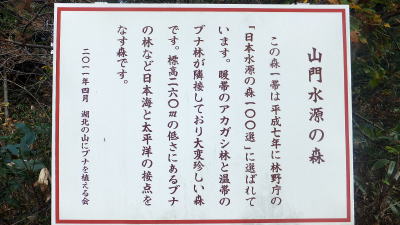 山門水源の森
この森一帯は平成七年に林野庁の
「日本水源の森一〇〇選」に選ばれて
います。暖帯のアカガシ林と温帯の
ブナ林が隣接しており大変珍しい森
です。標高二六〇mの低さにあるブナ
の林など日本海と太平洋の接点を
なす森です。
二〇一一年四月　湖北の山にブナを植える会